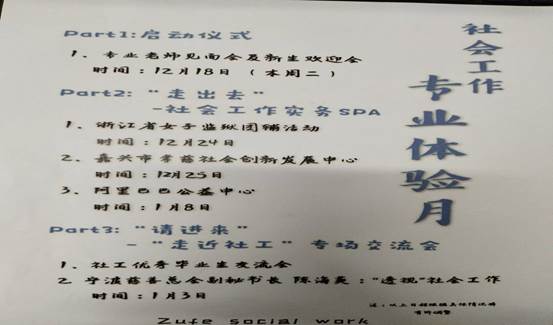 社会工作
专业体验月
Part1:启动仪式
1、专业老师见面会及新生欢迎会
时间：12月18日（本周二）
Part2:“走出去”
-社会工作实务SPA
1、浙江省女子监狱团辅活动
时间：12月24日
2、嘉兴市孝慈社会创新发展中心
时间：12月25日
3、阿里巴巴公益中心
时间：1月8日
Part3:“请进来”
-“走近社工”专场交流会
1、社工优秀毕业生交流会
2、宁波慈善总会副秘书长 陈海英：“透视”社会工作
时间：1月3日
注：以上日期根据具体情况将
有所调整
Zufe social work